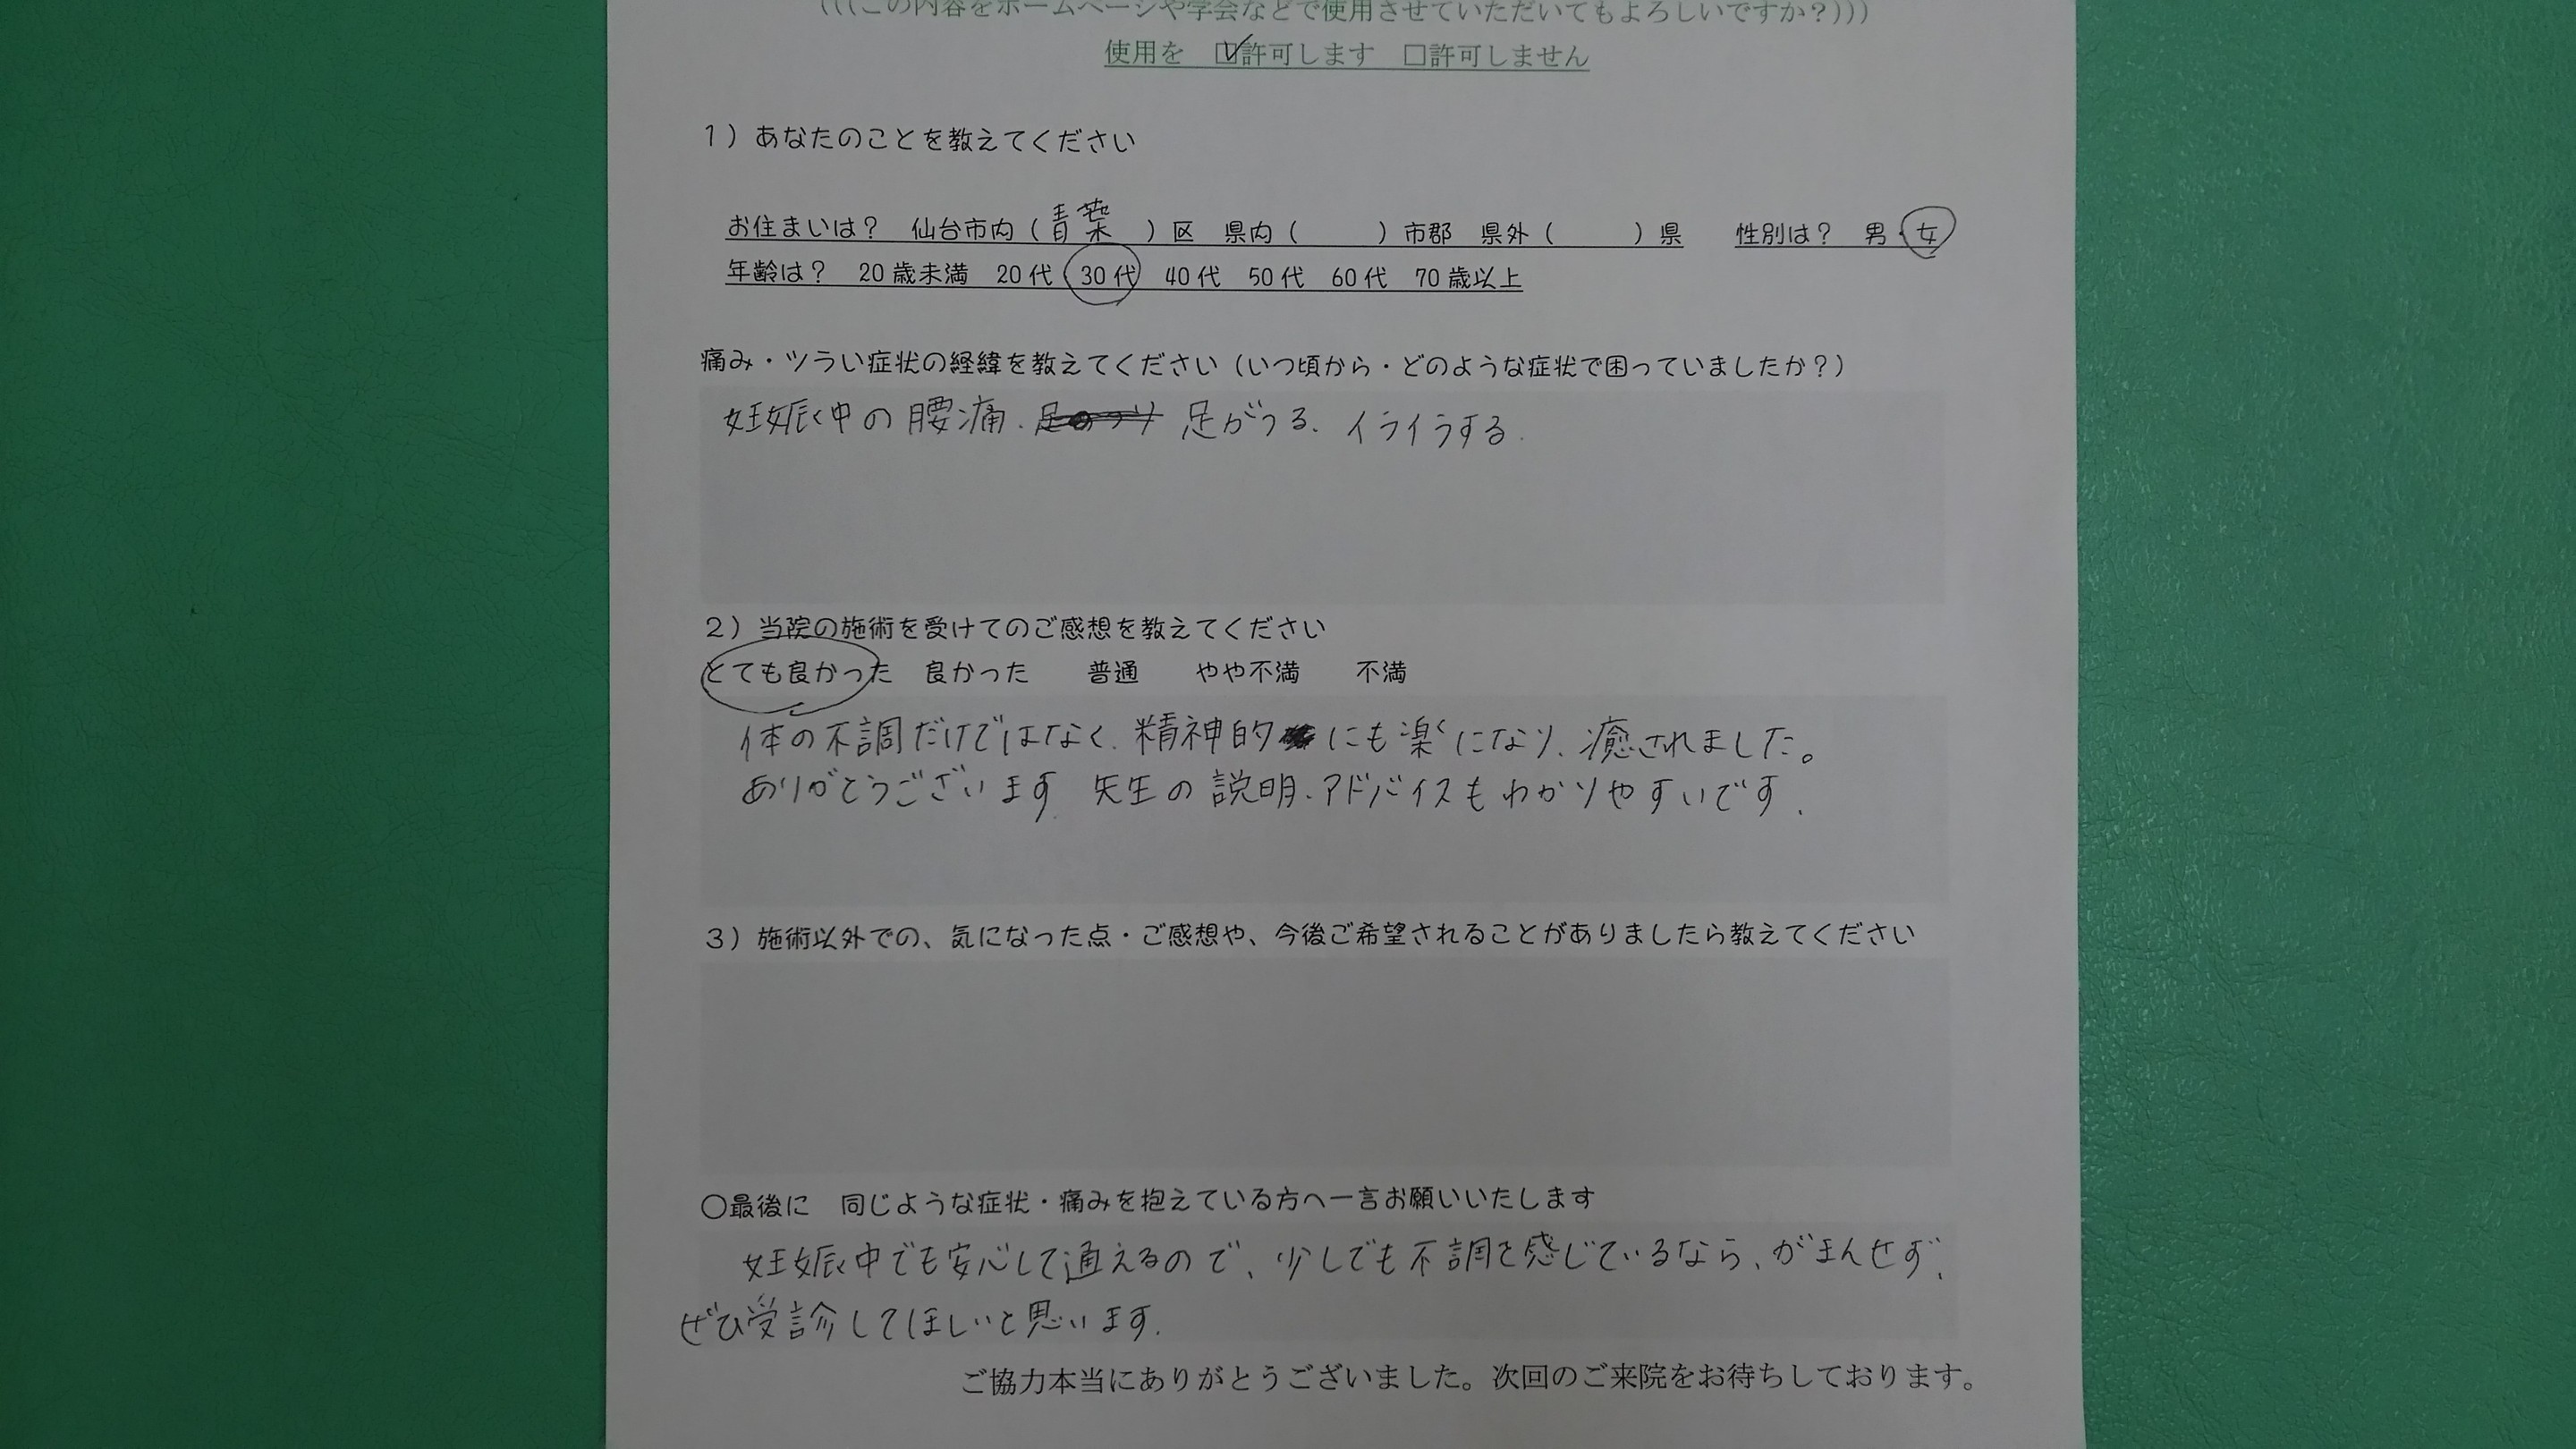 (((この内容をホームページや学会などで使用させていただいてもよろしいですか？)))
使用を ☑許可します □許可しません
１）あなたのことを教えてください
お住まいは？ 仙台市内（青葉）区 県内（ ）市郡 県外（ ）県 性別は？ 男・女
年齢は？ 20歳未満 20代 30代 40代 50代 60代 70歳以上
痛み・ツラい症状の経緯を教えてください（いつ頃から・どのような症状で困っていましたか？）
妊娠中の腰痛、足のツリ 足がつる、イライラする。
２）当院の施術を受けてのご感想を教えてください
とても良かった 良かった 普通 やや不満 不満
体の不調だけではなく、精神的にも楽になり、癒されました。
ありがとうございます。先生の説明、アドバイスもわかりやすいです。
３）施術以外での、気になった点・ご感想や、今後ご希望されることがありましたら教えてください
○最後に 同じような症状・痛みを抱えている方へ一言お願いいたします
妊娠中でも安心して通えるので、少しでも不調を感じているなら、がまんせず、
ぜひ受診してほしいと思います。
ご協力本当にありがとうございました。次回のご来院をお待ちしております。